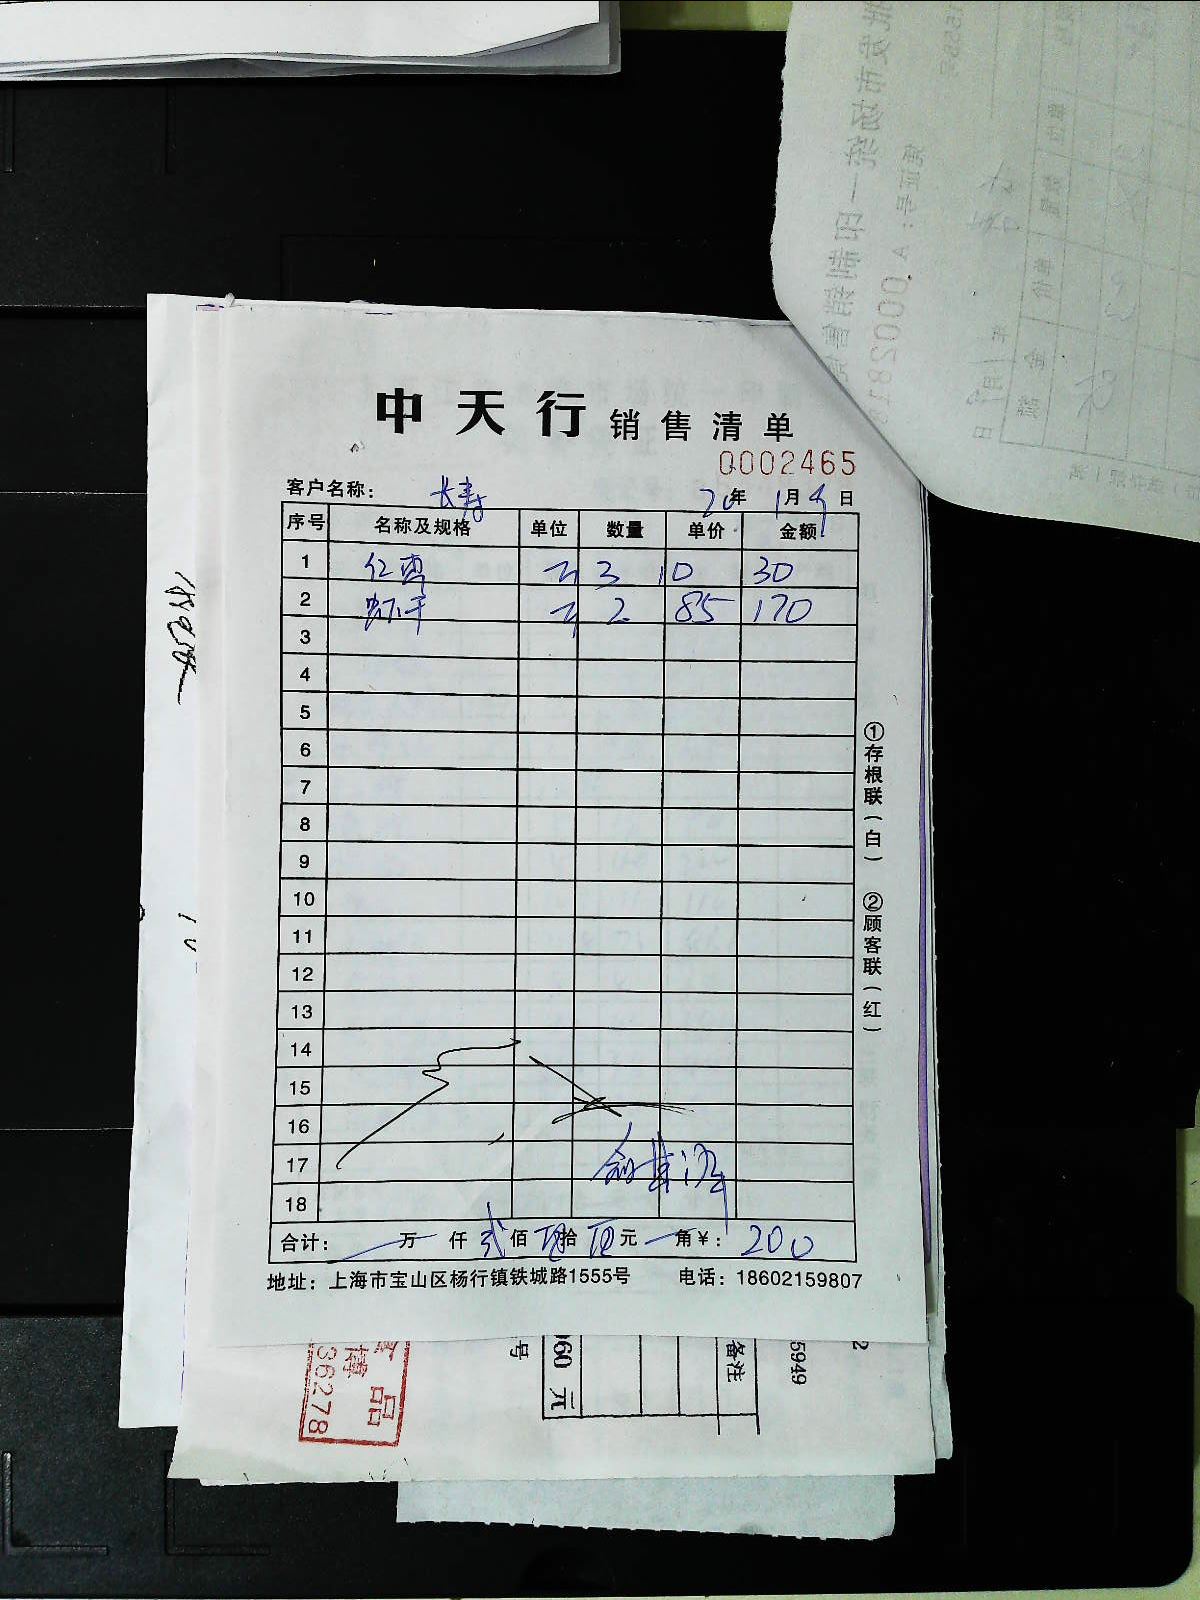 中天行 销售清单
0002465
客户名称： 长寿 20年 1月 9日
序号 名称及规格 单位 数量 单价 金额
1 3 10 30
2 虾干 2 85 170
3
4
5
6
7
8
9
10
11
12
13
14
15
16
17
18
合计： 万 仟 贰 佰 零 拾 零 元 角 ¥： 200
地址：上海市宝山区杨行镇铁城路1555号 电话：18602159807
①存根联（白） ②顾客联（红）
品
36278
号
060 元
备注
5949